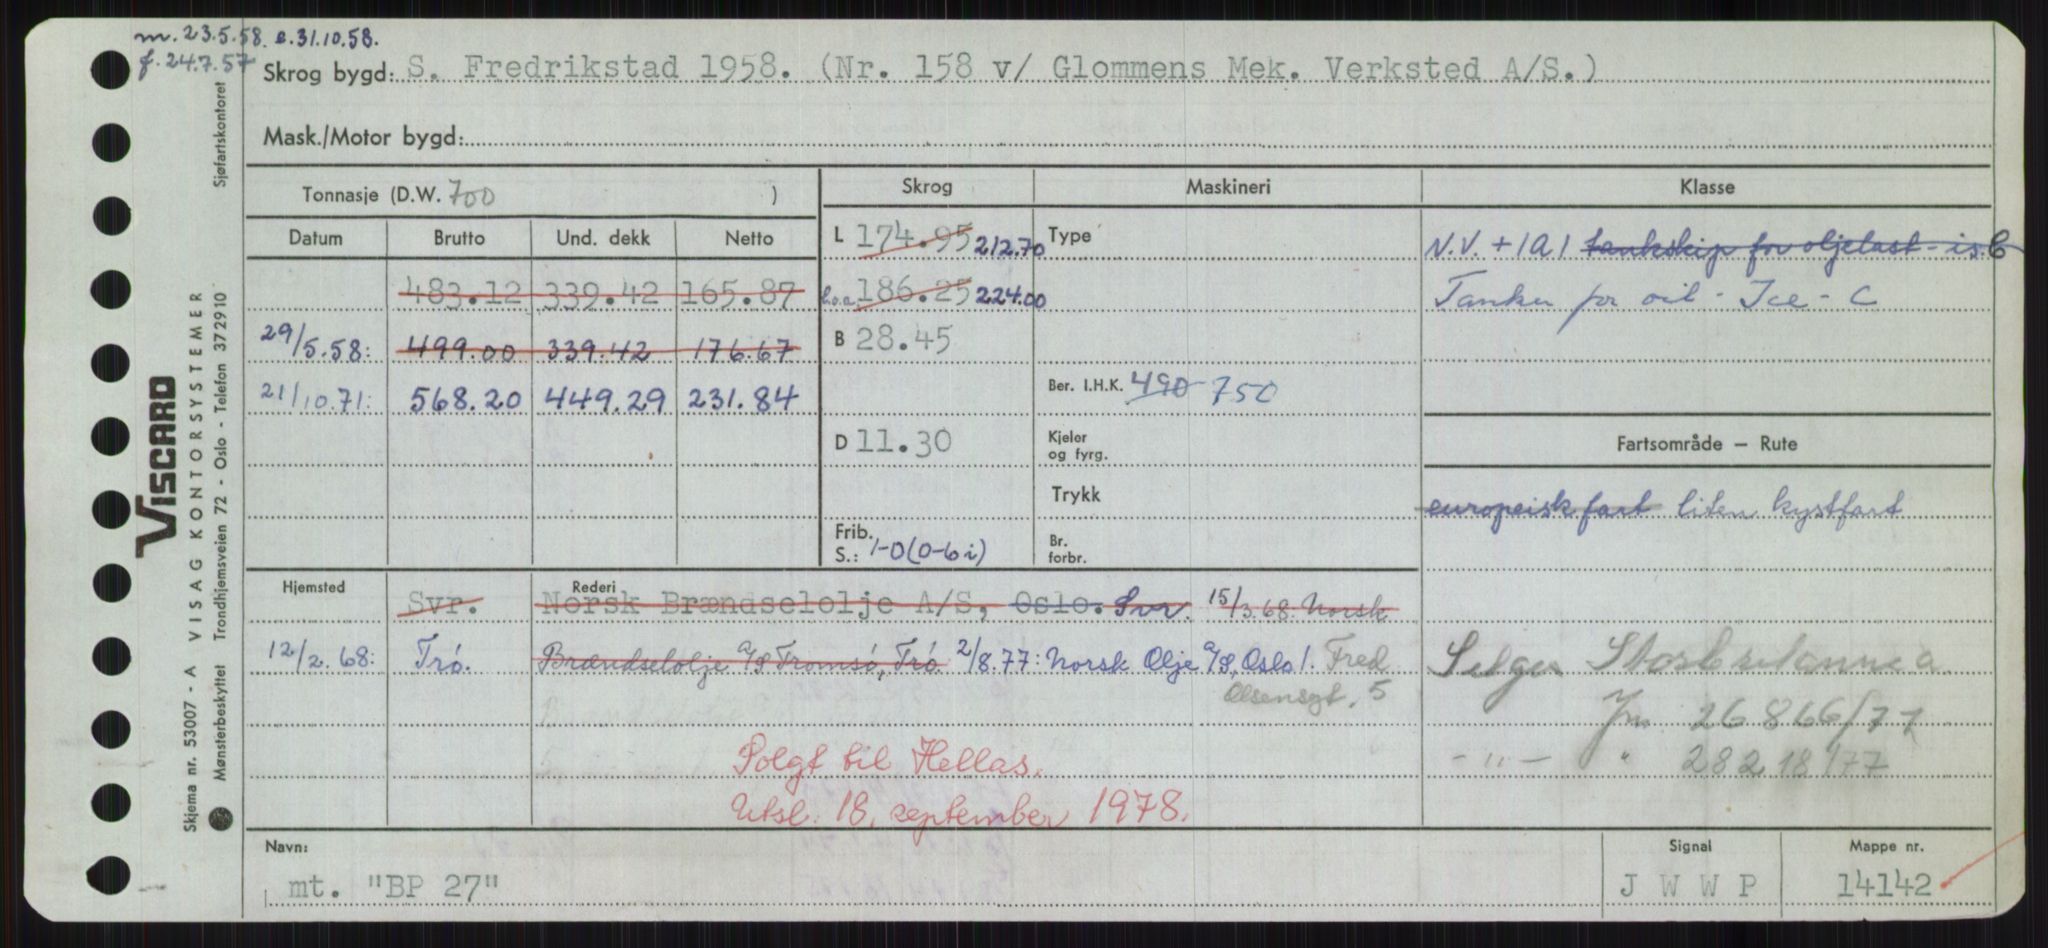 m. 23.5.58. e.31.10.58.
f. 24.7.57
Skrog bygd: S. Fredrikstad 1958. (Nr. 158 v/ Glommens Mek. Verksted A/S.)
Mask./Motor bygd:
Tonnasje (D.W. 700 )
Skrog
Maskineri
Klasse
Datum Brutto Und. dekk Netto
483.12 339.42 165.87
29/5.58: 499.00 339.42 176.67
21/10.71: 568.20 449.29 231.84
L 174.95 212.70
l.o.a. 186.25 224.00
B 28.45
D 11.30
Frib.
S.: 1-0(0-6i)
Type
Ber. I.H.K. 490 750
Kjeler
og fyrg.
Trykk
Br.
forbr.
N.V. + 1A1 tankskip for oljelast - is. C
Tanker for oil - Ice - C
Fartsområde – Rute
europeisk fart liten kystfart
Hjemsted
Rederi
Svr. Norsk Brændselolje A/S, Oslo. Svr. 15/3.68: Norsk
12/2.68: Trø. Brændselolje A/S Tromsø, Trø. 2/8.77: Norsk Olje A/S, Oslo 1. Fred
Olsensgt. 5
Selger
Jnr. 26866/77
- " - " 28218/77
Solgt til Hellas.
Utsl. 18. september 1978.
Navn:
mt. "BP 27"
Signal
J W W P
Mappe nr.
14142
VISCARD
Skjema nr. 53007 - A VISAG KONTORSYSTEMER
Mønsterbeskyttet Trondhjemsveien 72 - Oslo - Telefon 372910 Sjøfartskontoret